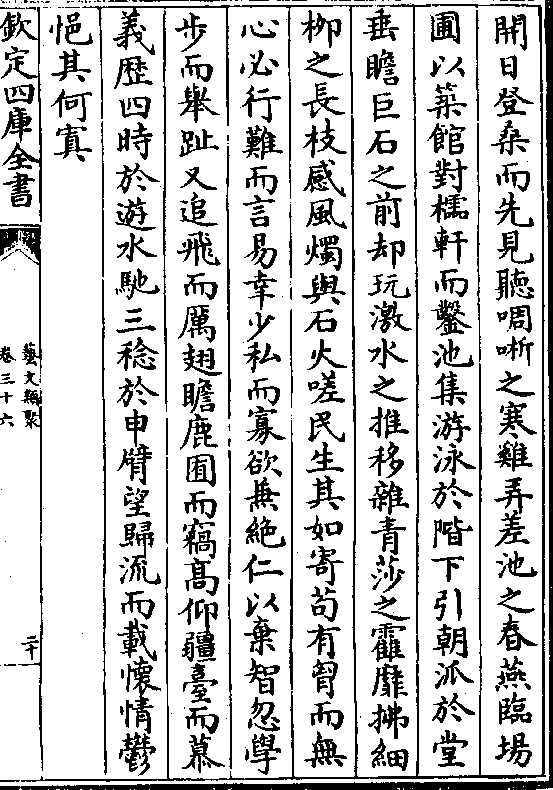 開日登桑而先見聽啁哳之寒雞弄差池之春燕臨場
圃以築館對櫺軒而鑿池集游泳於階下引朝派於堂
垂瞻巨石之前却玩激水之推移雜青莎之霍靡拂細
栁之長枝感風燭與石火嗟民生其如寄苟有胷而無
心必行難而言易幸少私而寡欲無絶仁以棄智忽學
步而舉趾又追飛而厲翅瞻鹿囿而竊髙仰疆臺而慕
義歴四時於遊水馳三稔於申臂望歸流而載懷情鬱
悒其何寘
欽定四庫全書
藝文類聚
卷三十六
二十